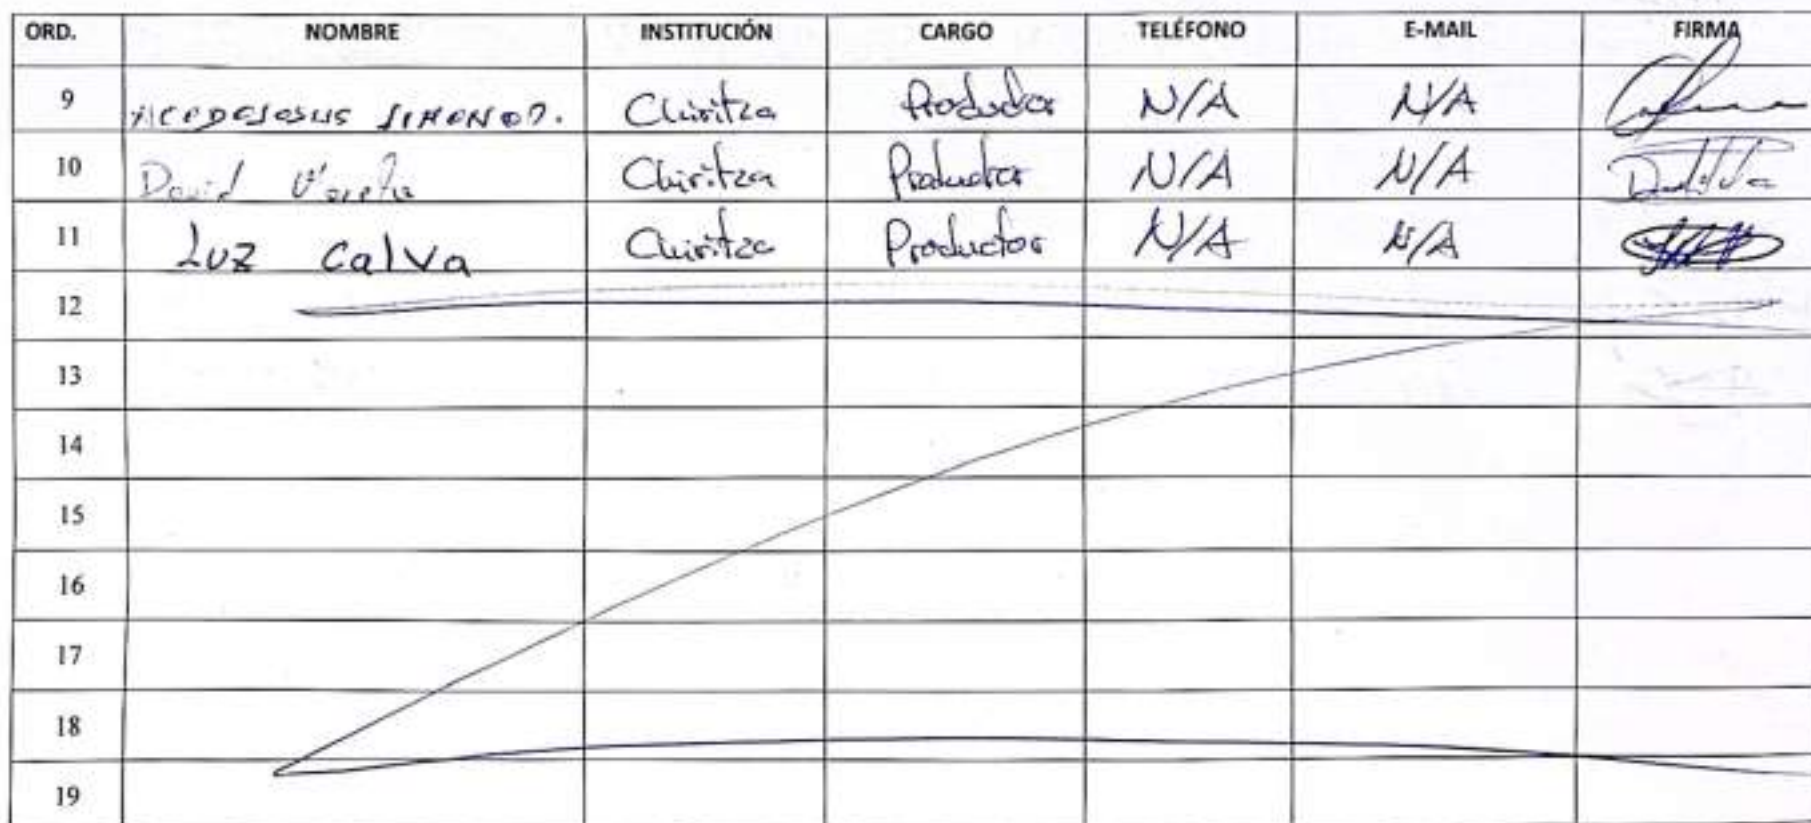 ORD. NOMBRE INSTITUCIÓN CARGO TELÉFONO E-MAIL FIRMA
9 Chiritza Productor N/A N/A
10 David Chiritza Productor N/A N/A
11 Luz Calva Chiritza Productor N/A N/A
12
13
14
15
16
17
18
19